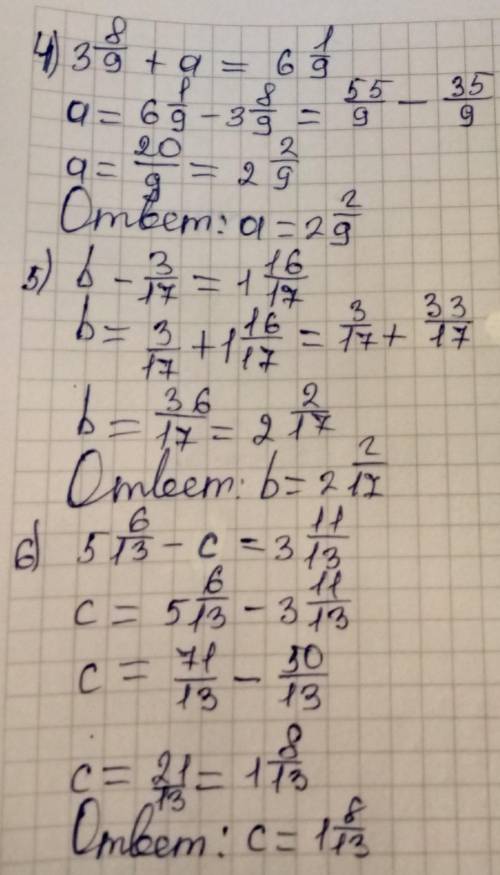 4) 3 8/9 + a = 6 1/9
a = 6 1/9 - 3 8/9 = 55/9 - 35/9
a = 20/9 = 2 2/9
Ответ: a = 2 2/9
5) b - 3/17 = 1 16/17
b = 3/17 + 1 16/17 = 3/17 + 33/17
b = 36/17 = 2 2/17
Ответ: b = 2 2/17
6) 5 6/13 - c = 3 11/13
c = 5 6/13 - 3 11/13
c = 71/13 - 50/13
c = 21/13 = 1 8/13
Ответ: c = 1 8/13